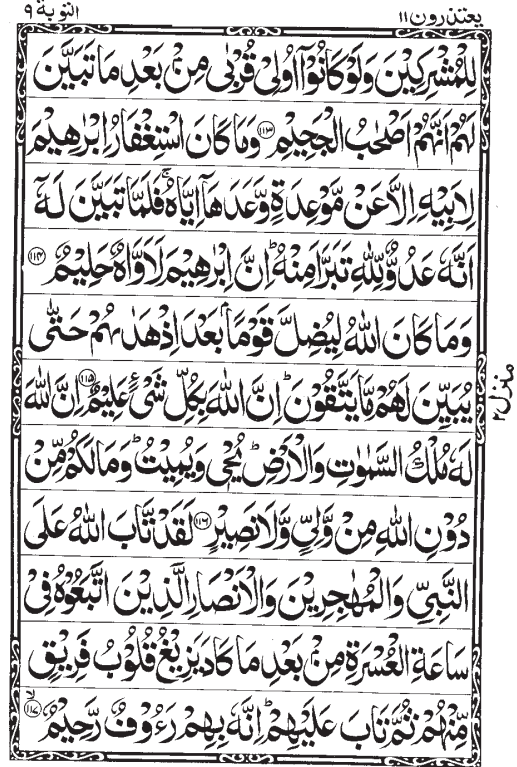 يعتذرون ١١ التوبة ٩
لِلْمُشْرِكِيْنَ وَلَوْ كَانُوْۤا اُولِیْ قُرْبٰی مِنْۢ بَعْدِ مَا تَبَيَّنَ
لَهُمْ اَنَّهُمْ اَصْحٰبُ الْجَحِيْمِ ﴿۱۱۳﴾ وَمَا كَانَ اسْتِغْفَارُ اِبْرٰهِيْمَ
لِاَبِيْهِ اِلَّا عَنْ مَّوْعِدَةٍ وَّعَدَهَاۤ اِيَّاهُ ۚ فَلَمَّا تَبَيَّنَ لَهٗۤ
اَنَّهٗ عَدُوٌّ لِّلّٰهِ تَبَرَّاَ مِنْهُ ؕ اِنَّ اِبْرٰهِيْمَ لَاَوَّاهٌ حَلِيْمٌ ﴿۱۱۴﴾
وَمَا كَانَ اللّٰهُ لِيُضِلَّ قَوْمًۢا بَعْدَ اِذْ هَدٰىهُمْ حَتّٰی
يُبَيِّنَ لَهُمْ مَّا يَتَّقُوْنَ ؕ اِنَّ اللّٰهَ بِكُلِّ شَیْءٍ عَلِيْمٌ ﴿۱۱۵﴾ اِنَّ اللّٰهَ
لَهٗ مُلْكُ السَّمٰوٰتِ وَالْاَرْضِ ؕ يُحْیٖ وَيُمِيْتُ ؕ وَمَا لَكُمْ مِّنْ
دُوْنِ اللّٰهِ مِنْ وَّلِیٍّ وَّلَا نَصِيْرٍ ﴿۱۱۶﴾ لَقَدْ تَّابَ اللّٰهُ عَلَی
النَّبِیِّ وَالْمُهٰجِرِيْنَ وَالْاَنْصَارِ الَّذِيْنَ اتَّبَعُوْهُ فِیْ
سَاعَةِ الْعُسْرَةِ مِنْۢ بَعْدِ مَا كَادَ يَزِيْغُ قُلُوْبُ فَرِيْقٍ
مِّنْهُمْ ثُمَّ تَابَ عَلَيْهِمْ ؕ اِنَّهٗ بِهِمْ رَءُوْفٌ رَّحِيْمٌ ﴿۱۱۷﴾ ۙ
منزل ۲